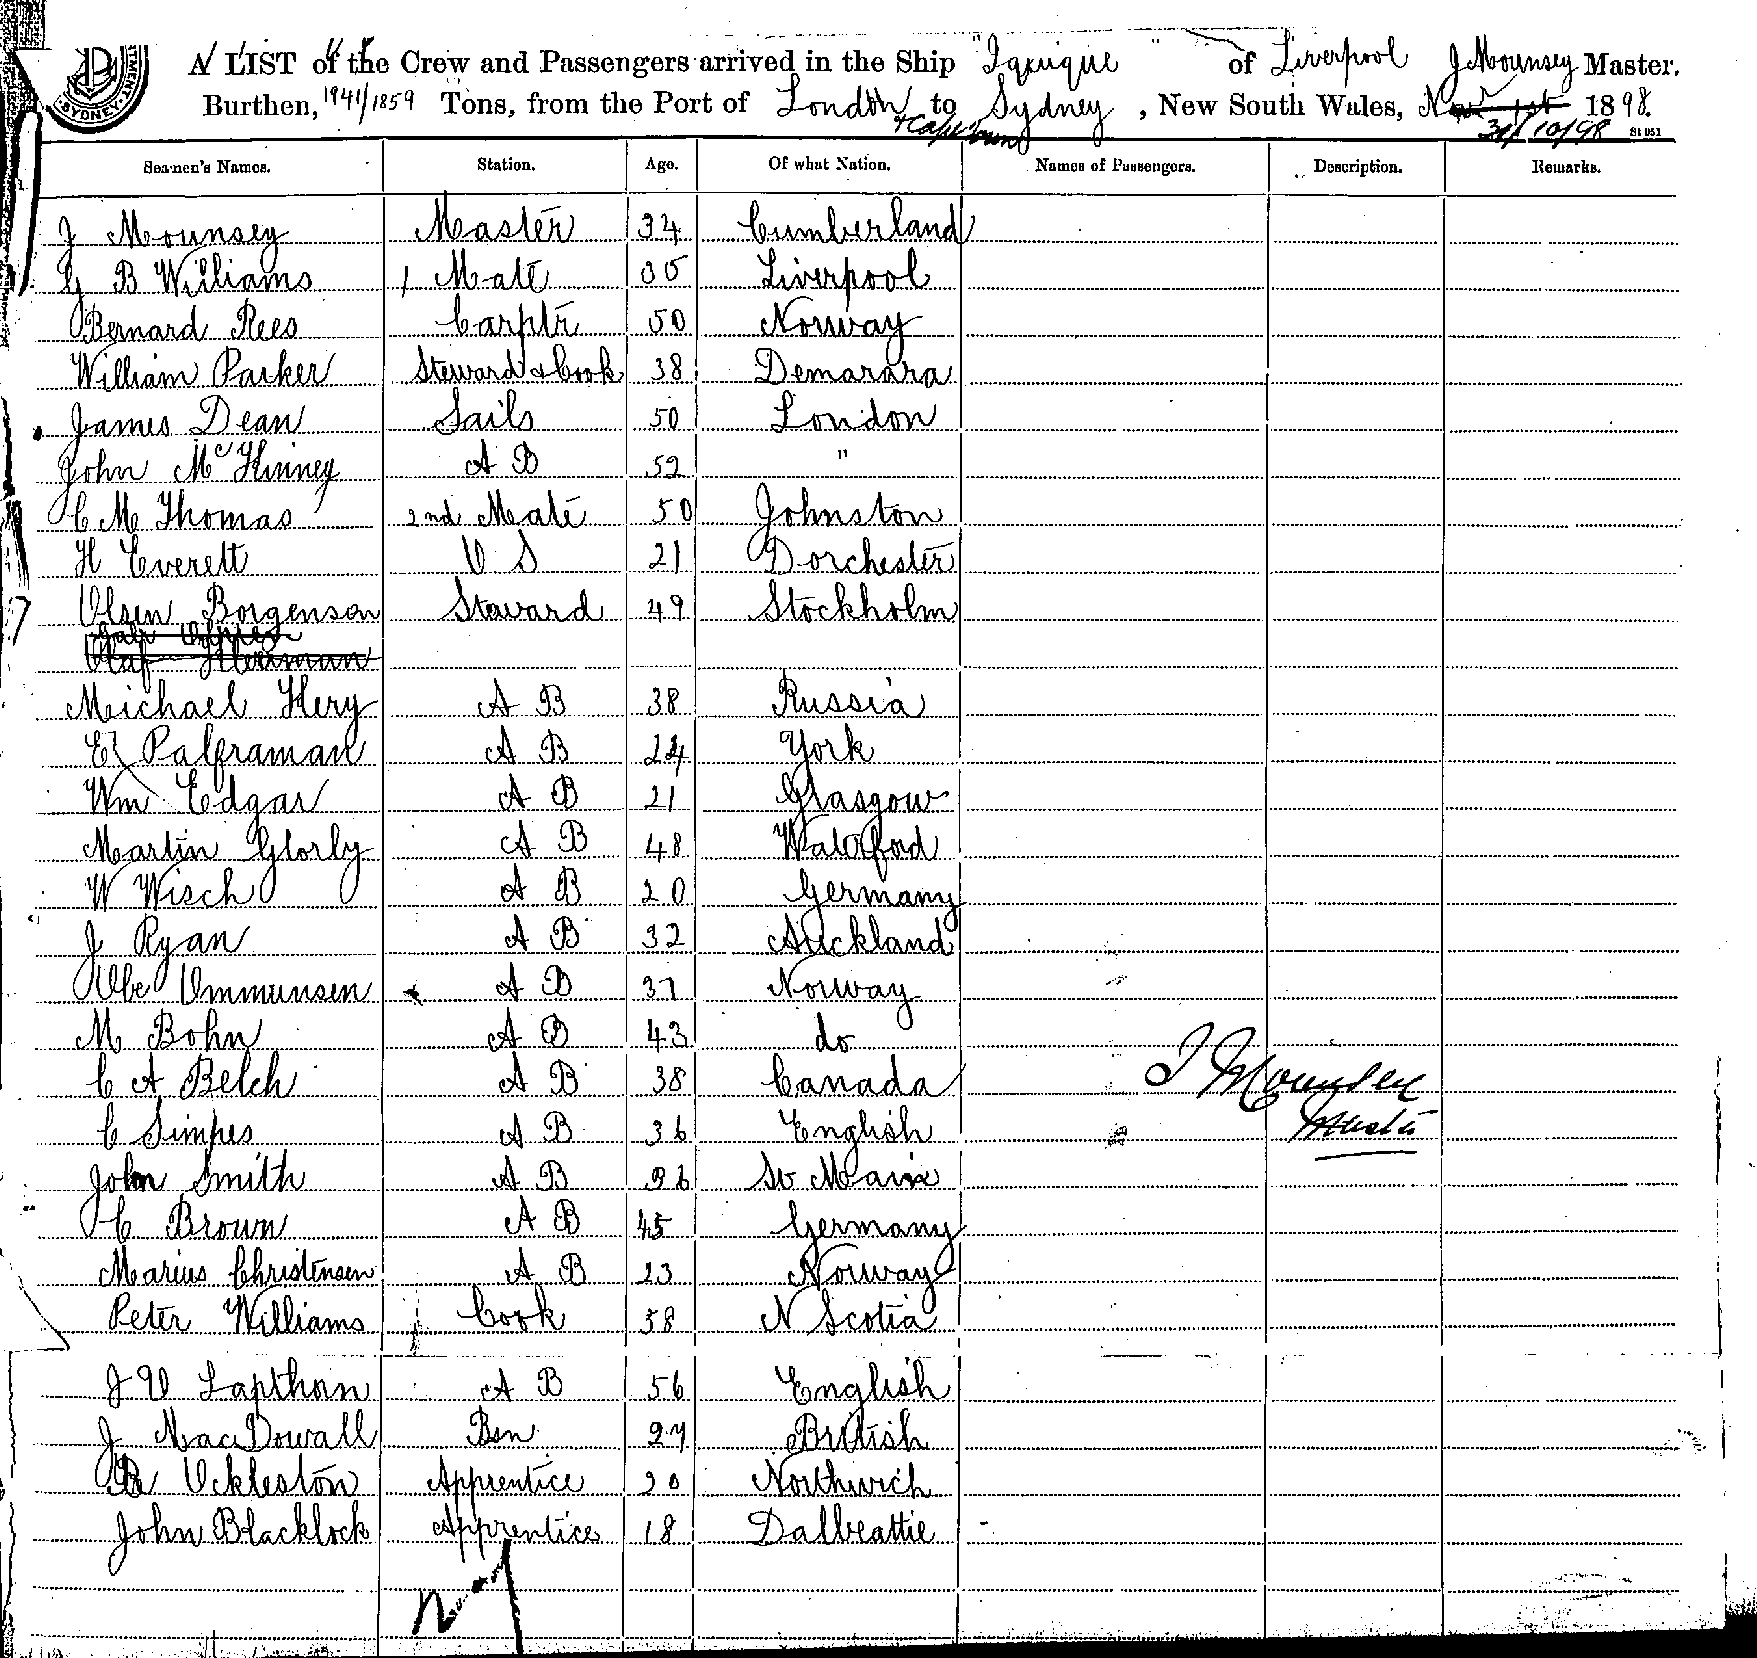 A LIST of the Crew and Passengers arrived in the Ship "Iquique" of Liverpool J Mounsey Master.
Burthen, 1941/1859 Tons, from the Port of London to Sydney, New South Wales, Nov 1st 1898.
+ Capetown 31/10/98 St 051
Seamen's Names. Station. Age. Of what Nation. Names of Passengers. Description. Remarks.
J Mounsey Master 34 Cumberland
G B Williams 1 Mate 35 Liverpool
Bernard Rees Carptr 50 Norway
William Parker Steward & Cook 38 Demarara
James Dean Sails 50 London
John McKinney A B 52 "
C M Thomas 2nd Mate 50 Johnston
H Everett O S 21 Dorchester
Olsen Borgenson Steward 49 Stockholm
Olaf
Michael Hery A B 38 Russia
E Palframan A B 24 York
Wm Edgar A B 21 Glasgow
Martin Glorby A B 48 Waterford
W Wisch A B 20 Germany
J Ryan A B 32 Auckland
Ole Ommunsen A B 37 Norway
M Bohn A B 43 do
C A Belch A B 38 Canada
J Mounsey
C Simpes A B 36 English
Master
John Smith A B 36 St
C Brown A B 45 Germany
Marius Christensen A B 23 Norway
Peter Williams Cook 58 N Scotia
J W Lapthorn A B 56 English
J MacDowall Bsn 27 British
R Ockleston Apprentice 20 Northwich
John Blacklock Apprentice 18 Dalbeattie